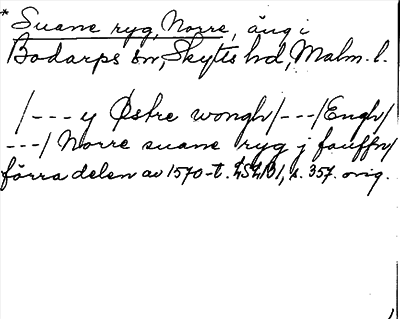 * Suane ryg, Norre, äng i
Bodarps sn, Skytts hd, Malm. l.
/--- y Østre wongh/---/Engh/
---/ Norre suane ryg j fauffn/
förra delen av 1570-t. LSLB1, s. 357. orig.